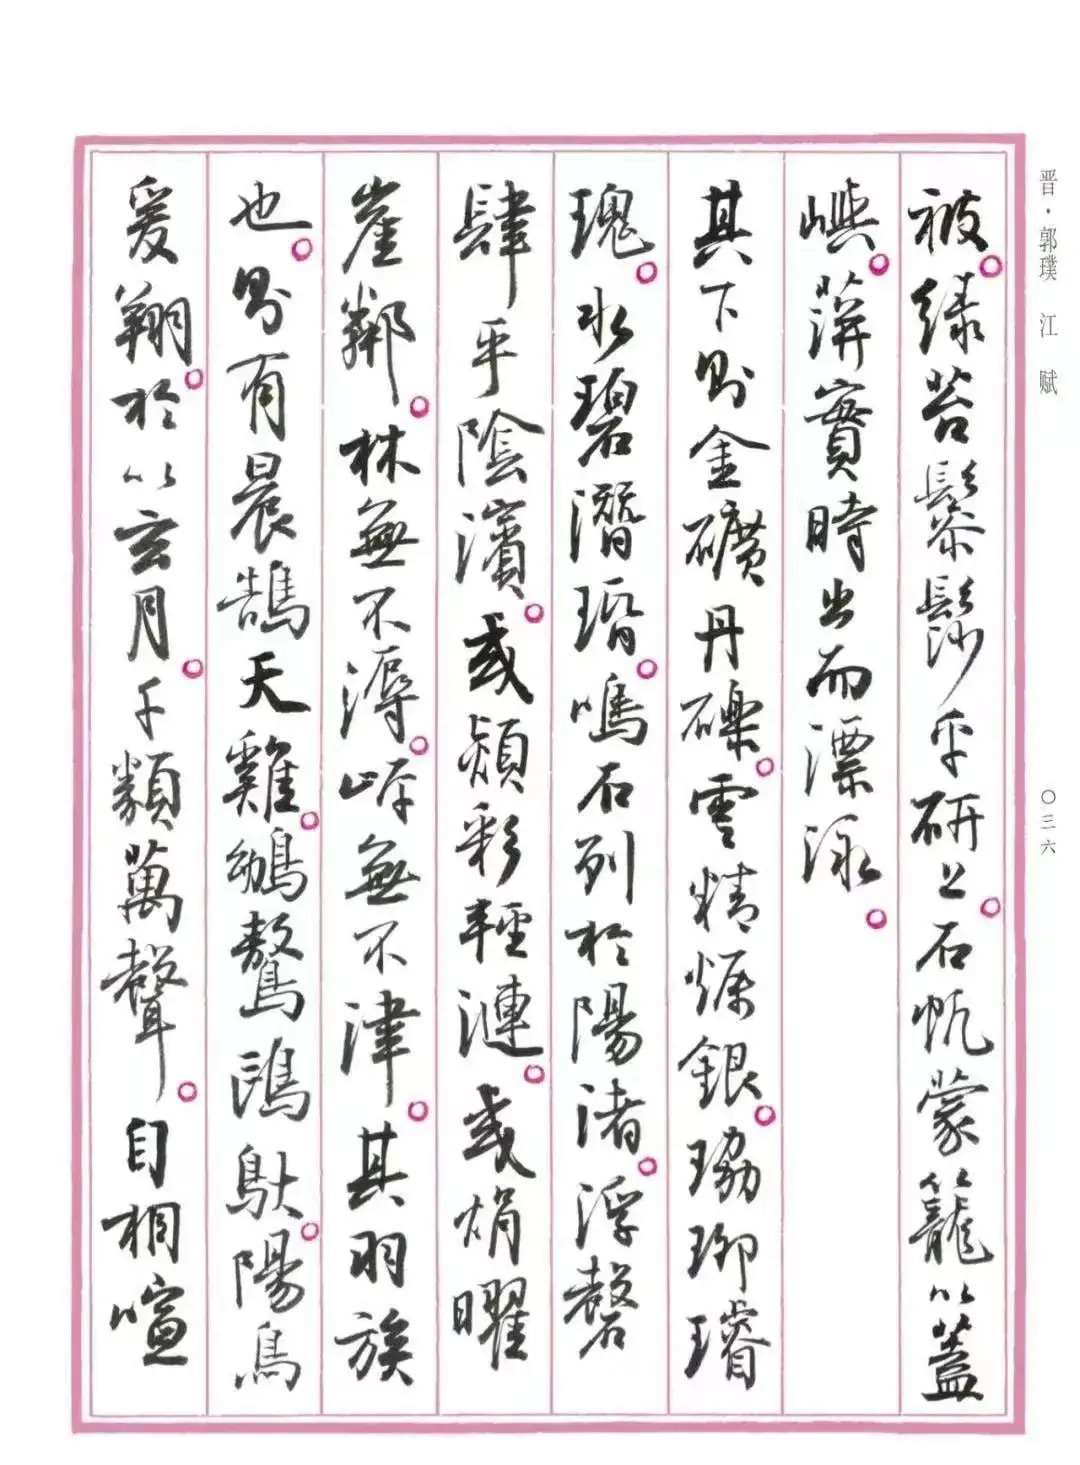 晋·郭璞 江赋
〇三六
被。緑苔鬖髿乎研上。石帆蒙籠以蓋
嶼。蓱實時出而漂泳。
其下則金礦丹礫。雲精爥銀。珕珋璿
瑰。水碧潛琘。鳴石列於陽渚。浮磬
肆乎陰濱。或熲彩輕漣。或焆曜
崖鄰。林無不溽。岸無不津。其羽族
也。則有晨鵠天雞。鴢鷔鷗䭾。陽鳥
爰翔。於以玄月。千類萬聲。自相喧